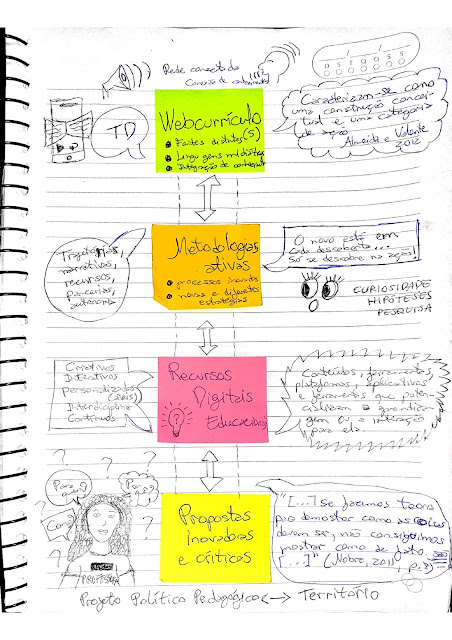 Rede conectada
D S T Q Q S S
Webcurrículo(s)
• Fontes distintas
• Linguagens midiáticas
• Integração de
TD
Caracterizam-se como
uma construção concei-
tual e uma categoria
de ação
Almeida e Valente
2012
Metodologias
ativas
• processos inovados
• novas e diferentes
estratégias
Trajetórias,
narrativas,
recursos,
parcerias,
autonomia
O novo está em
cada descoberta...
Só se descobre na ação!
CURIOSIDADE
HIPÓTESES
PESQUISA
Recursos
Digitais
Educacionais
Criativos
Interativos
personalizados
(áveis)
Interdisciplinar
Contínuos
Conteúdos, ferramentas,
plataformas, aplicativos
e ferramentas que poten-
cializam a aprendiza-
gem ou a interação
para ela
Propostas
inovadoras
e críticas
Para
quem?
Por
quê?
Como
?
PROFESSORA
"[...] se fazemos teoria
pra demostrar como as coisas
devem ser, não conseguimos
mostrar como de fato são
[...]" (Nobre, 2011, p. 8)
Projeto Político Pedagógico → Território